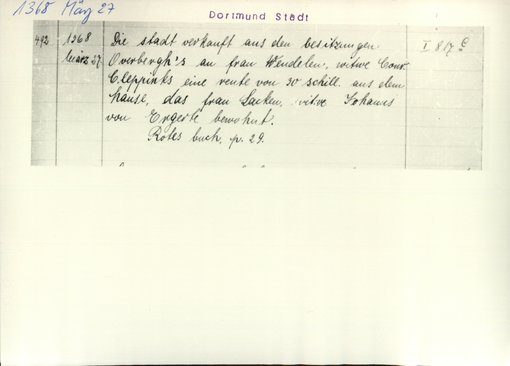 1368 März 27
Dortmund Stadt
492 1368 Die stadt verkauft aus den besitzungen I 817
märz 27. Overbergh's an frau Wendelen, witwe Conr.
Cleppinks eine rente von 30 schill. aus dem
hause, das frau witve Johanns
von bewohnt.
Rotes buch, p. 29.